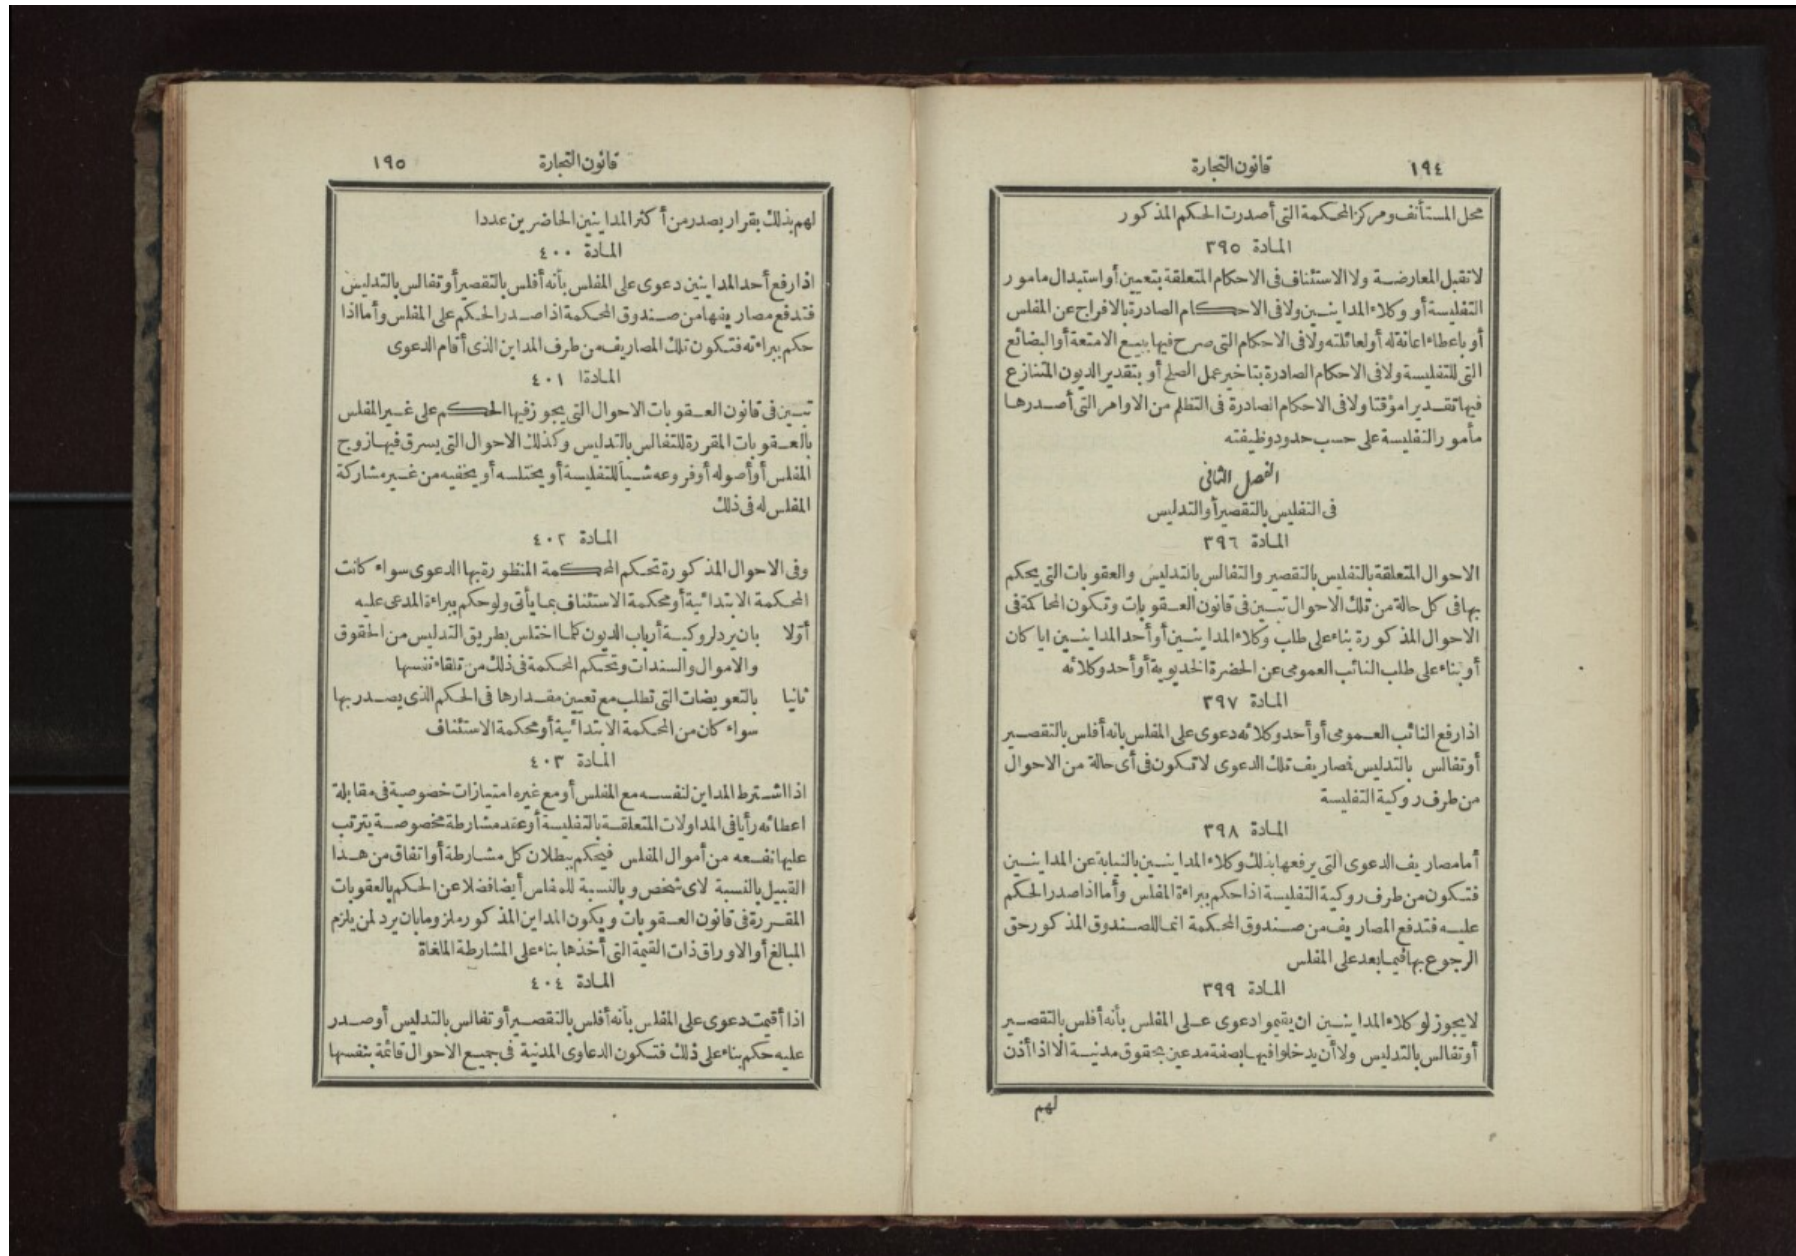 ١٩٤ قانون التجارة
محل المستأنف ومركز المحكمة التى أصدرت الحكم المذكور
المادة ٣٩٥
لا تقبل المعارضة ولا الاستئناف فى الاحكام المتعلقة بتعيين أو استبدال مامور
التفليسة أو وكلاء المداينين ولا فى الاحكام الصادرة بالافراج عن المفلس
أو باعطاء اعانة له أو لعائلته ولا فى الاحكام التى صرح فيها ببيع الامتعة أو البضائع
التى للتفليسة ولا فى الاحكام الصادرة بتاخير عمل الصلح أو بتقدير الديون المتنازع
فيها تقديرا مؤقتا ولا فى الاحكام الصادرة فى التظلم من الاوامر التى أصدرها
مأمور التفليسة على حسب حدود وظيفته
الفصل الثانى
فى التفليس بالتقصير أو التدليس
المادة ٣٩٦
الاحوال المتعلقة بالتفليس بالتقصير والتفالس بالتدليس والعقوبات التى يحكم
بها فى كل حالة من تلك الاحوال تبين فى قانون العقوبات وتكون المحاكمة فى
الاحوال المذكورة بناء على طلب وكلاء المداينين أو أحد المداينين ايا كان
أو بناء على طلب النائب العمومى عن الحضرة الخديوية أو أحد وكلائه
المادة ٣٩٧
اذا رفع النائب العمومى أو أحد وكلائه دعوى على المفلس بانه أفلس بالتقصير
أو تفالس بالتدليس فصاريف تلك الدعوى لا تكون فى أى حالة من الاحوال
من طرف روكية التفليسة
المادة ٣٩٨
أما مصاريف الدعوى التى يرفعها بذلك وكلاء المداينين بالنيابة عن المداينين
فتكون من طرف روكية التفليسة اذا حكم ببراءة المفلس وأما اذا صدر الحكم
عليه فتدفع المصاريف من صندوق المحكمة انما للصندوق المذكور حق
الرجوع بها فيما بعد على المفلس
المادة ٣٩٩
لا يجوز لوكلاء المداينين ان يقيموا دعوى على المفلس بأنه أفلس بالتقصير
أو تفالس بالتدليس ولا أن يدخلوا فيها بصفة مدعين بحقوق مدنية الا اذا أذن
لهم
قانون التجارة ١٩٥
لهم بذلك بقرار يصدر من أكثر المداينين الحاضرين عددا
المادة ٤٠٠
اذا رفع أحد المداينين دعوى على المفلس بأنه أفلس بالتقصير أو تفالس بالتدليس
فتدفع مصاريفها من صندوق المحكمة اذا صدر الحكم على المفلس وأما اذا
حكم ببراءته فتكون تلك المصاريف من طرف المداين الذى أقام الدعوى
المادة ٤٠١
تبين فى قانون العقوبات الاحوال التى يجوز فيها الحكم على غير المفلس
بالعقوبات المقررة للتفالس بالتدليس وكذلك الاحوال التى يسرق فيها زوج
المفلس أو أصوله أو فروعه شيأ للتفليسة أو يختلسه أو يخفيه من غير مشاركة
المفلس له فى ذلك
المادة ٤٠٢
وفى الاحوال المذكورة تحكم المحكمة المنظورة بها الدعوى سواء كانت
المحكمة الابتدائية أو محكمة الاستئناف بما يأتى ولو حكم ببراءة المدعى عليه
أولا بان يرد لروكية أرباب الديون كلما اختلس بطريق التدليس من الحقوق
والاموال والسندات وتحكم المحكمة فى ذلك من تلقاء نفسها
ثانيا بالتعويضات التى تطلب مع تعيين مقدارها فى الحكم الذى يصدر بها
سواء كان من المحكمة الابتدائية أو محكمة الاستئناف
المادة ٤٠٣
اذا اشترط المداين لنفسه مع المفلس أو مع غيره امتيازات خصوصية فى مقابلة
اعطائه رأيا فى المداولات المتعلقة بالتفليسة أو عقد مشارطة مخصوصة يترتب
عليها نفعه من أموال المفلس فيحكم ببطلان كل مشارطة أو اتفاق من هذا
القبيل بالنسبة لاى شخص وبالنسبة للمفلس أيضا فضلا عن الحكم بالعقوبات
المقررة فى قانون العقوبات ويكون المداين المذكور ملزوما بان يرد لمن يلزم
المبالغ أو الاوراق ذات القيمة التى أخذها بناء على المشارطة الملغاة
المادة ٤٠٤
اذا أقيمت دعوى على المفلس بأنه أفلس بالتقصير أو تفالس بالتدليس أو صدر
عليه حكم بناء على ذلك فتكون الدعاوى المدنية فى جميع الاحوال قائمة بنفسها